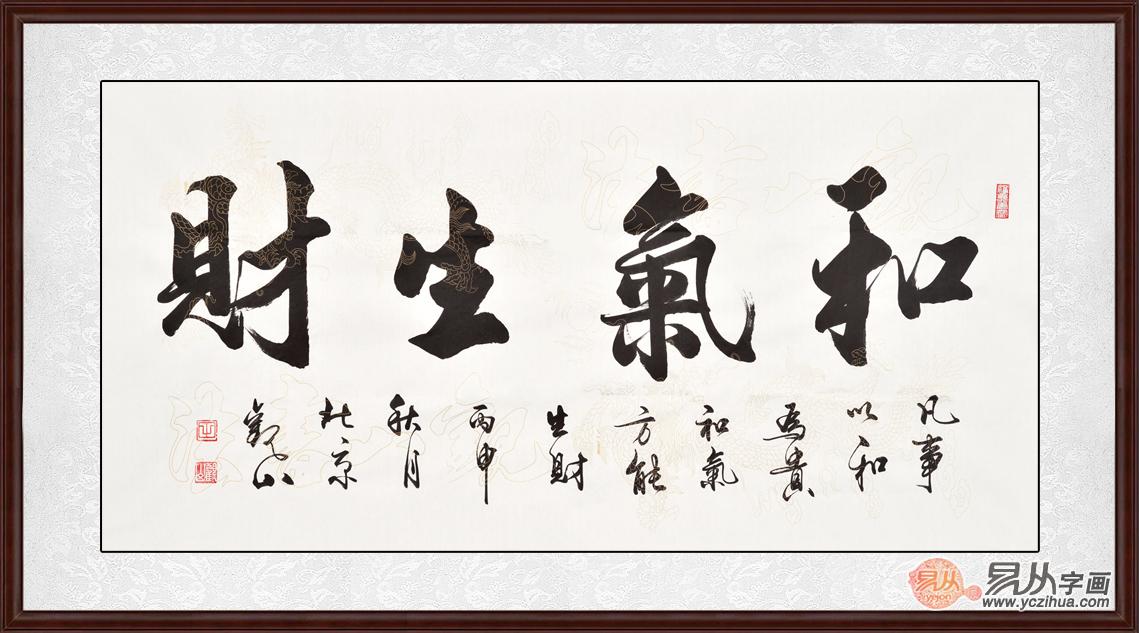 和氣生財
凡事
以和
為貴
和氣
方能
生財
丙申
秋月
北京
觀山
易从
yejion
易从字画
www.yczihua.com